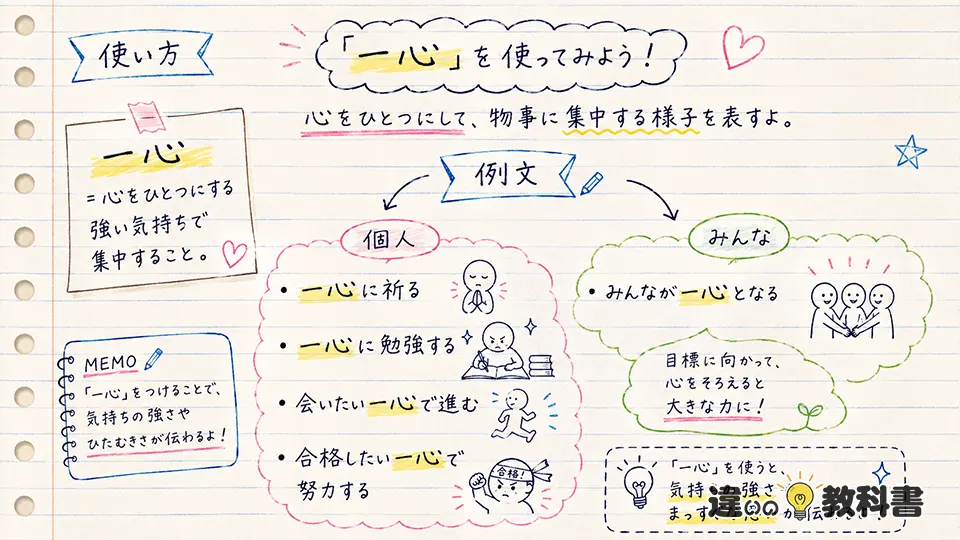 使い方
「一心」を使ってみよう!
心をひとつにして、物事に集中する様子を表すよ。
一心
=心をひとつにする
強い気持ちで
集中すること。
例文
個人
• 一心に祈る
• 一心に勉強する
• 会いたい一心で進む
• 合格したい一心で
努力する
合格!
みんな
• みんなが一心となる
目標に向かって、
心をそろえると
大きな力に!
MEMO
「一心」をつけることで、
気持ちの強さや
ひたむきさが伝わるよ!
「一心」を使うと、
気持 強さ
まっす 伝
違いの教科書